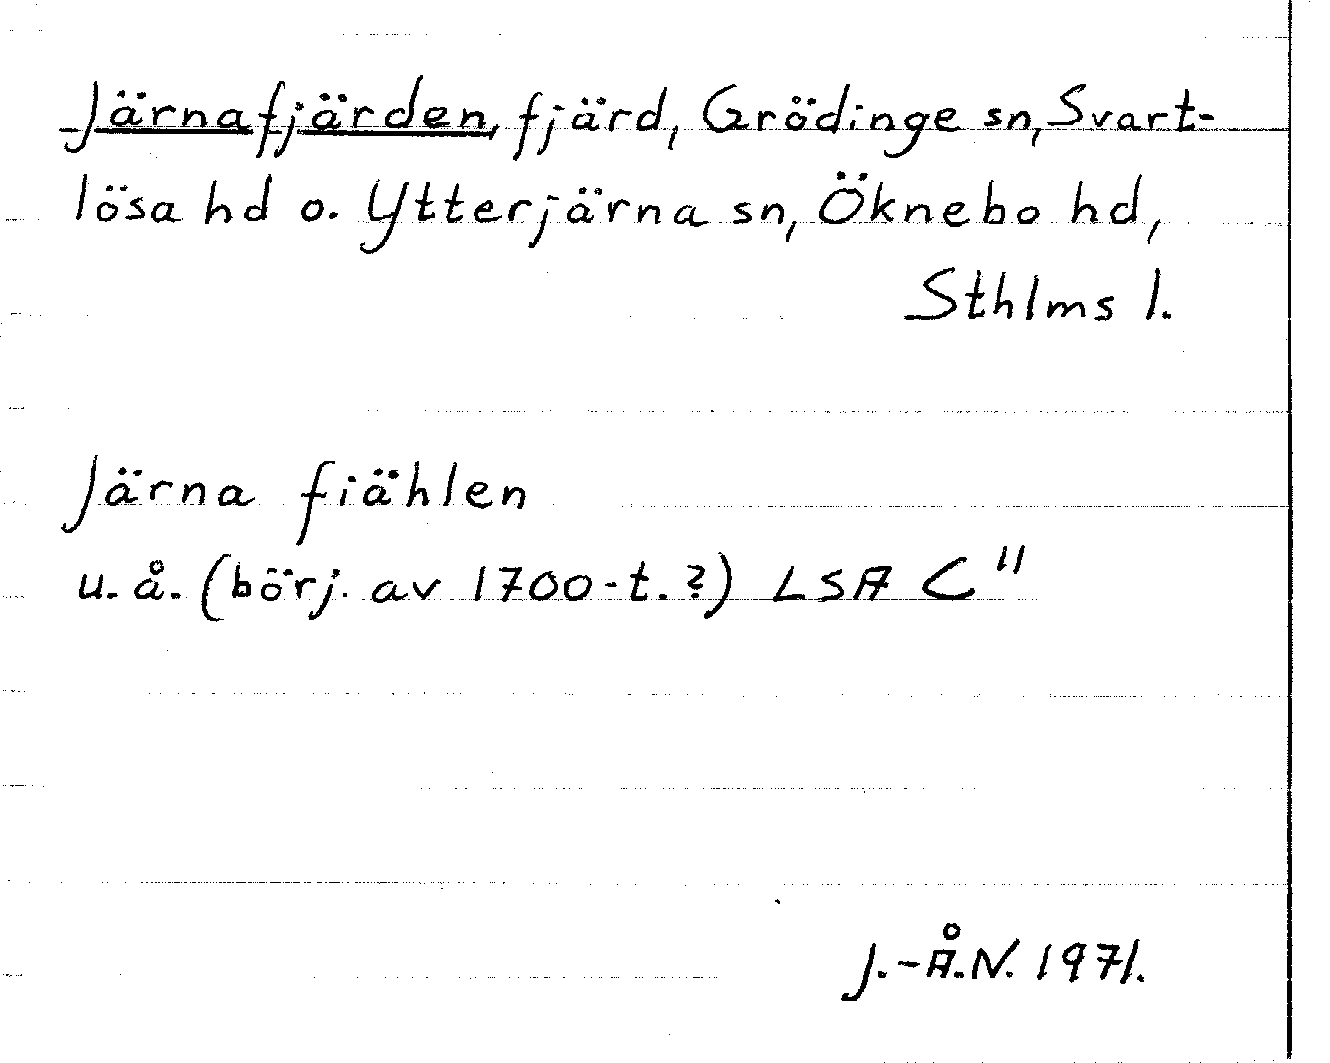 Järnafjärden, fjärd, Grödinge sn, Svart-
lösa hd o. Ytterjärna sn, Öknebo hd,
Sthlms l.
Järna fiählen
u. å. (börj. av 1700-t. ?) LSA C"
J.-Å.N. 1971.